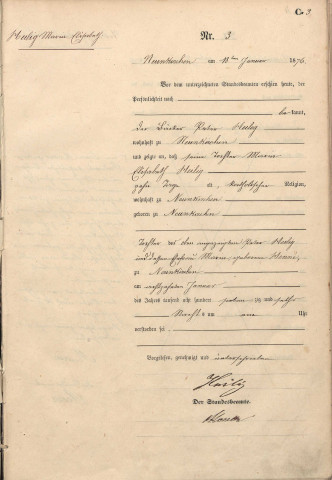 C. 3.
Heilig Maria Elisabeth
Nr. 3
Neunkirchen am 11ten Januar 1876
Vor dem unterzeichneten Standesbeamten erschien heute, der
Persönlichkeit nach
bekannt,
der Peter Heilig
wohnhaft zu Neunkirchen
und zeigte an, daß seine Tochter Maria
Elisabeth Heilig
zehn Tage alt, katholischer Religion,
wohnhaft zu Neunkirchen
geboren zu Neunkirchen
Tochter des oben angezeigten Peter Heilig
und dessen Ehefrau Maria, geborene
zu Neunkirchen
am Januar
des Jahres tausend acht hundert siebenzig und sechs
Nachts um ein Uhr
verstorben sei
Vorgelesen, genehmigt und unterschrieben
Heilig
Der Standesbeamte.